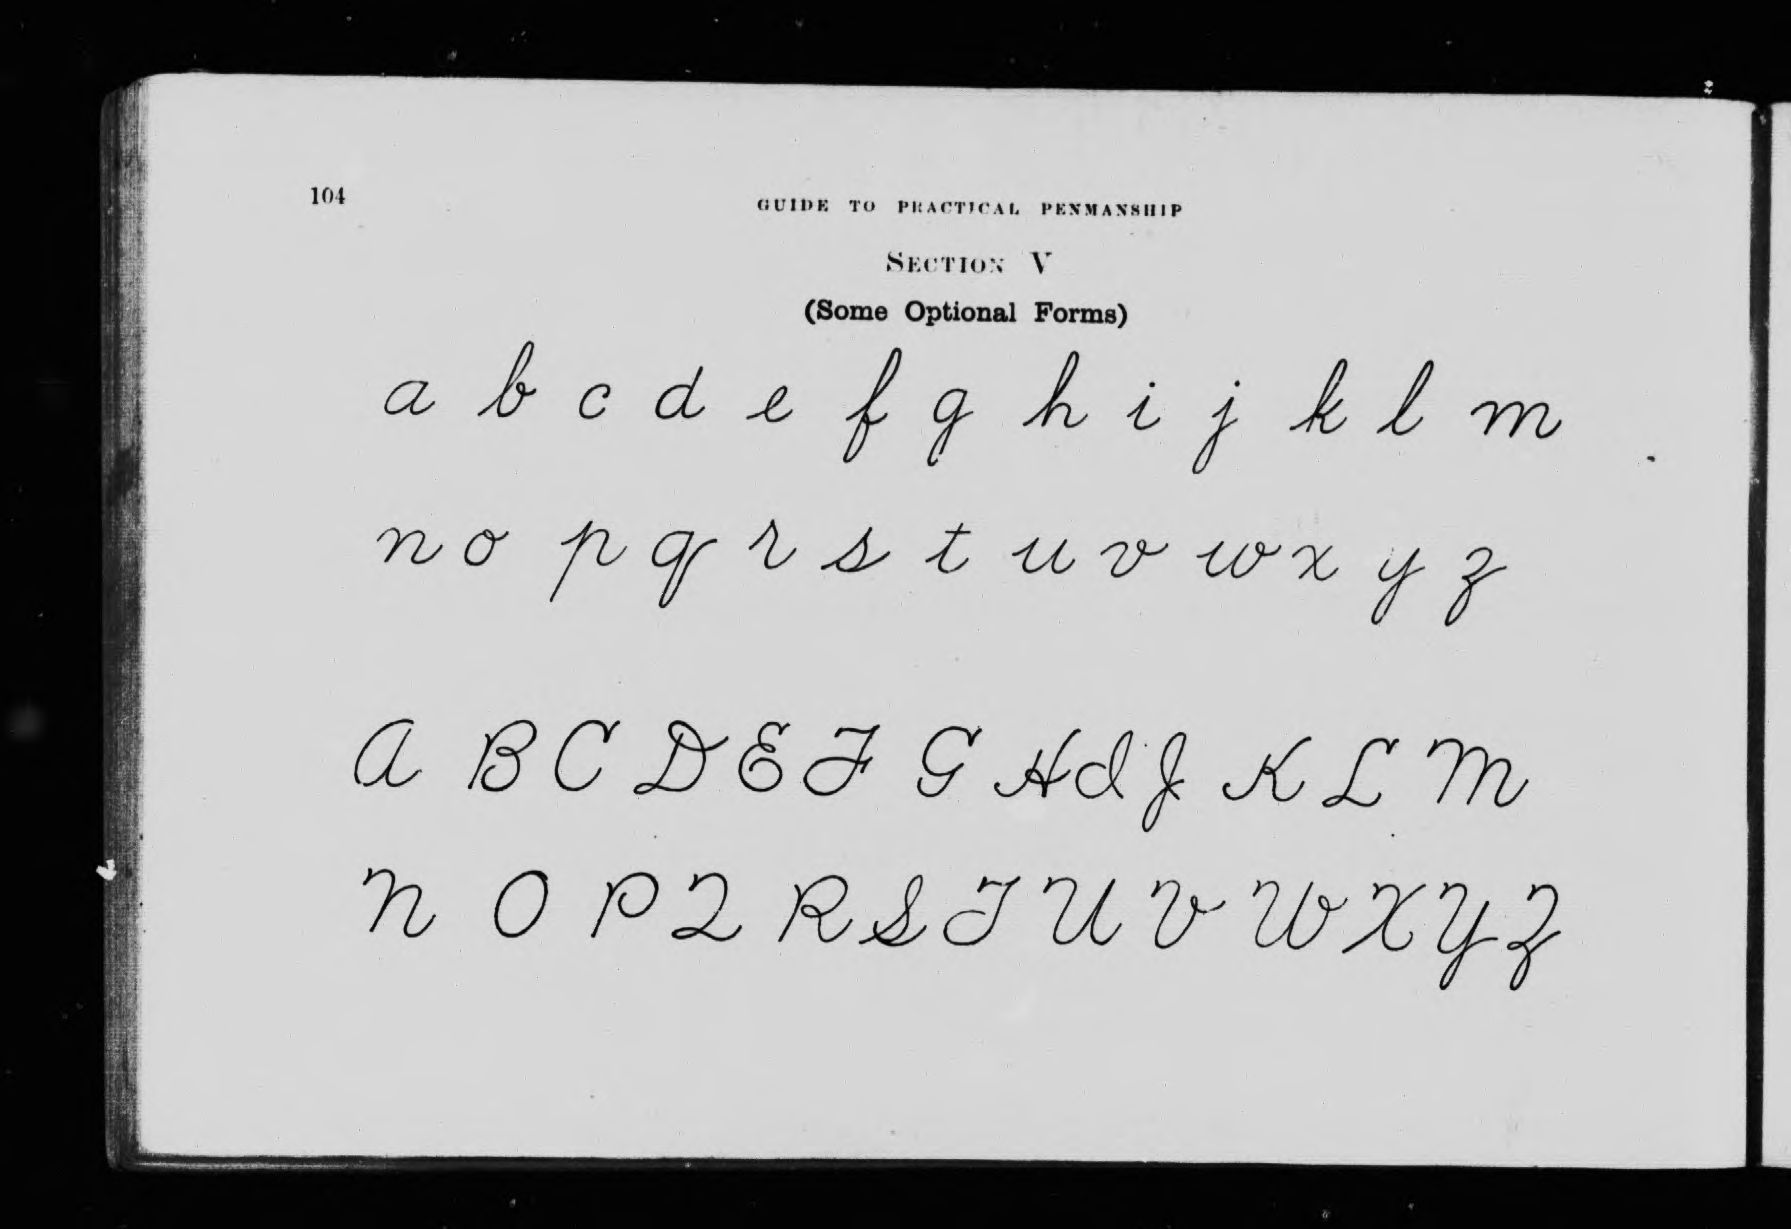 104
GUIDE TO PRACTICAL PENMANSHIP
SECTION V
(Some Optional Forms)
a b c d e f g h i j k l m
n o p q r s t u v w x y z
A B C D E F G H I J K L M
N O P Q R S T U V W X Y Z